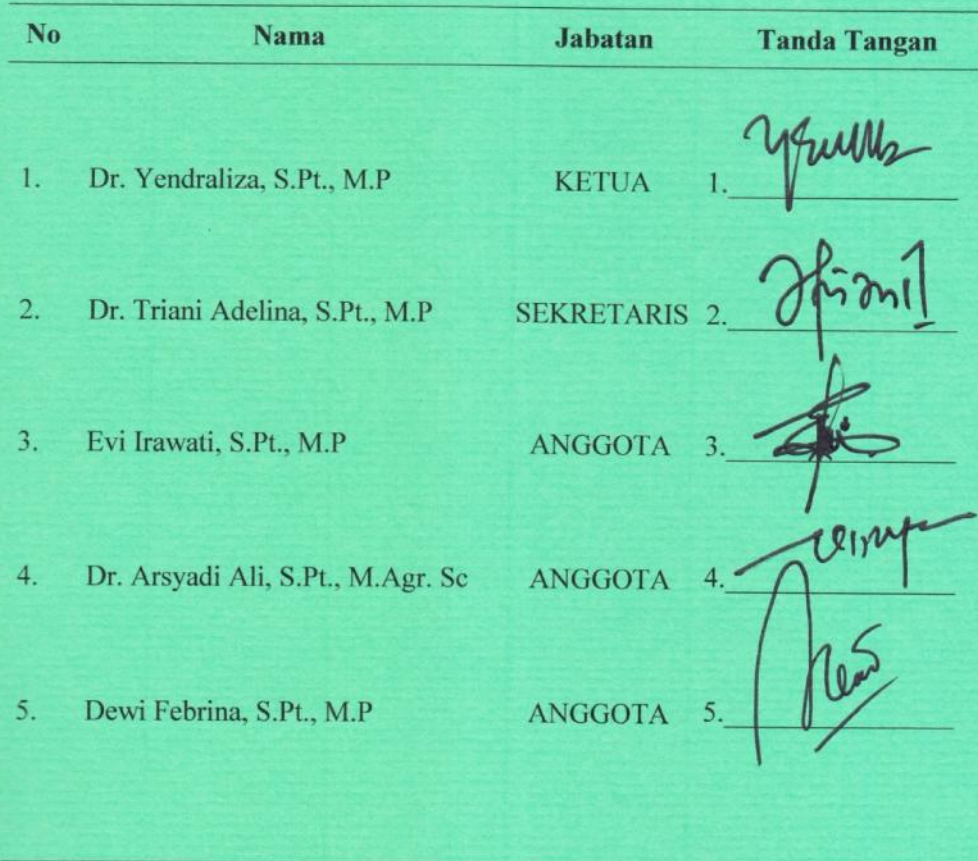 No Nama Jabatan Tanda Tangan
1. Dr. Yendraliza, S.Pt., M.P KETUA 1.
2. Dr. Triani Adelina, S.Pt., M.P SEKRETARIS 2.
3. Evi Irawati, S.Pt., M.P ANGGOTA 3.
4. Dr. Arsyadi Ali, S.Pt., M.Agr. Sc ANGGOTA 4.
5. Dewi Febrina, S.Pt., M.P ANGGOTA 5.